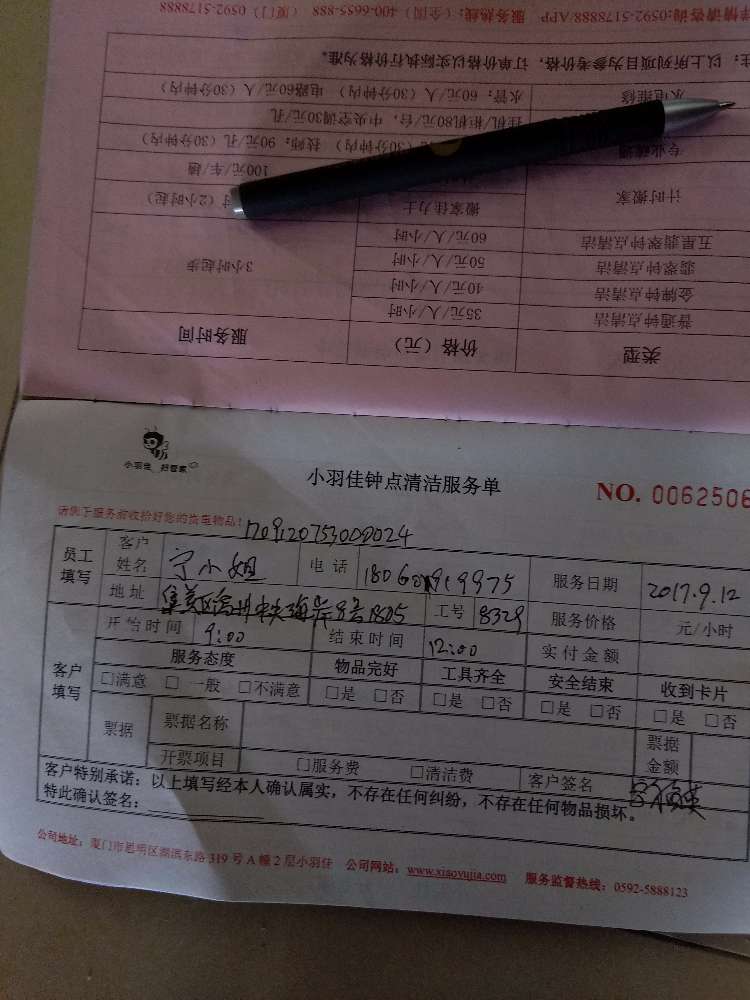 详情请咨询:0592-5178888/APP 服务热线:(全国) 400-6655-888 (厦门) 0592-5178888
注：以上所列项目为参考价格，订单价格以实际执行价格为准。
水电维修 水管：60元/人（30分钟内） 电路60元/人（30分钟内）
挂机/柜机80元/台，中央空调30元/孔
（30分钟内） 技师：90元/孔（30分钟内）
100元/车/趟
计时搬家 搬家佳力士 （2小时起）
五星翡翠钟点清洁 60元/人/小时
翡翠钟点清洁 50元/人/小时 3小时起步
金牌钟点清洁 40元/人/小时
普通钟点清洁 35元/人/小时
类型 价格（元） 服务时间
小羽佳 好管家
小羽佳钟点清洁服务单
NO. 0062506
请阁下服务前收拾好您的贵重物品！
170912075300024
员工填写 客户姓名 宁小姐 电话 服务日期 2017.9.12
地址 8号1805 工号 8329 服务价格 元/小时
开始时间 9:00 结束时间 12:00 实付金额
客户填写 服务态度 物品完好 工具齐全 安全结束 收到卡片
□满意 □一般 □不满意 □是 □否 □是 □否 □是 □否 □是 □否
票据 票据名称 票据金额
开票项目 □服务费 □清洁费 客户签名
客户特别承诺：以上填写经本人确认属实，不存在任何纠纷，不存在任何物品损坏。
特此确认签名：
公司地址：厦门市思明区湖滨东路319号A幢2层小羽佳 公司网站：www.xiaoyujia.com 服务监督热线：0592-5888123